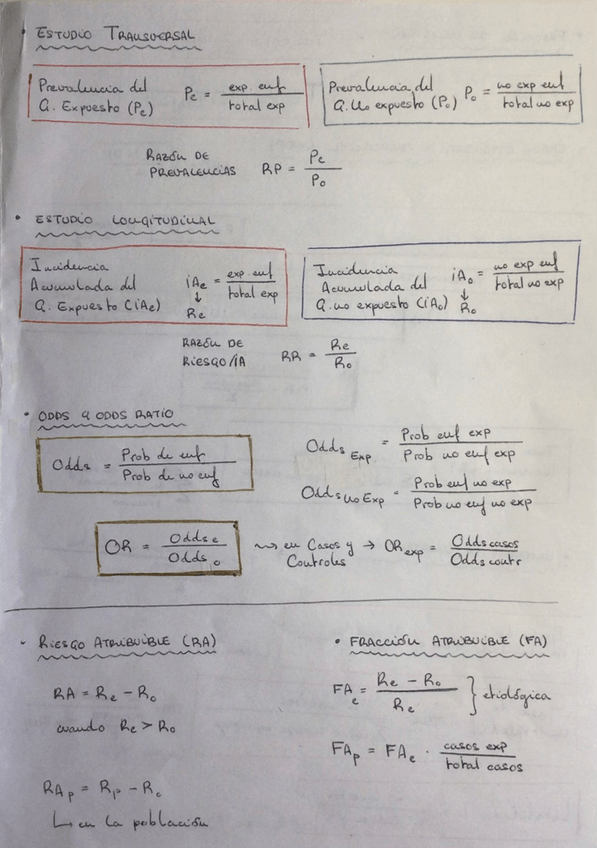 • ESTUDIO TRANSVERSAL
Prevalencia del
G. Expuesto (Pe)
Pe = exp. enf / total exp
Prevalencia del
G. No expuesto (Po)
Po = no exp enf / total no exp
RAZÓN DE
PREVALENCIAS
RP = Pe / Po
• ESTUDIO LONGITUDINAL
Incidencia
Acumulada del
G. Expuesto (iAe)
iAe = exp. enf / total exp
↓
Re
Incidencia
Acumulada del
G. no expuesto (iAo)
iAo = no exp enf / total no exp
↓
Ro
RAZÓN DE
RIESGO/IA
RR = Re / Ro
• ODDS Y ODDS RATIO
Odds = Prob de enf / Prob de no enf
Odds Exp = Prob enf exp / Prob no enf exp
Odds No Exp = Prob enf no exp / Prob no enf no exp
OR = Odds e / Odds o
→ en Casos y
Controles
→ OR exp = Odds casos / Odds contr
- RIESGO ATRIBUIBLE (RA)
RA = Re - Ro
cuando Re > Ro
RAp = Rp - Ro
↳ en la población
• FRACCIÓN ATRIBUIBLE (FA)
FAe = Re - Ro / Re } etiológica
FAp = FAe · casos exp / total casos